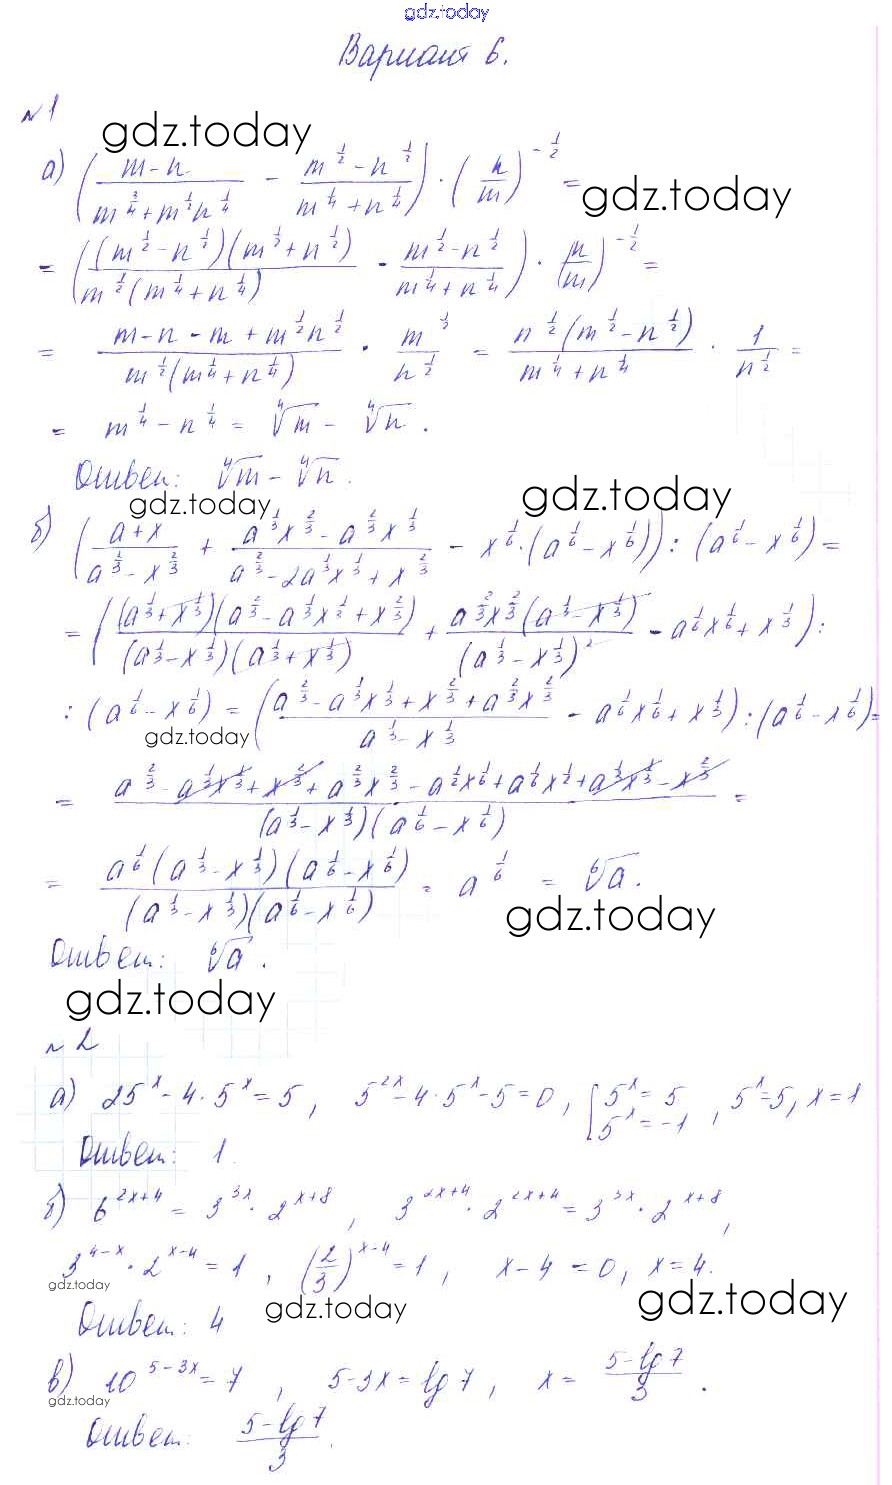 gdz.today
Вариант 6.
№1
gdz.today
а) ((m-n)/(m^(3/4)+m^(1/2)n^(1/4)) - (m^(1/2)-n^(1/2))/(m^(1/4)+n^(1/4))) · (n/m)^(-1/2) =
gdz.today
= (((m^(1/2)-n^(1/2))(m^(1/2)+n^(1/2)))/(m^(1/2)(m^(1/4)+n^(1/4))) - (m^(1/2)-n^(1/2))/(m^(1/4)+n^(1/4))) · (n/m)^(-1/2) =
= (m-n-m+m^(1/2)n^(1/2))/(m^(1/2)(m^(1/4)+n^(1/4))) · m^(1/2)/n^(1/2) = (n^(1/2)(m^(1/2)-n^(1/2)))/(m^(1/4)+n^(1/4)) · 1/n^(1/2) =
= m^(1/4) - n^(1/4) = ⁴√m - ⁴√n.
Ответ: ⁴√m - ⁴√n.
gdz.today
gdz.today
б) ((a+x)/(a^(2/3)-x^(2/3)) + (a^(1/3)x^(2/3)-a^(2/3)x^(1/3))/(a^(2/3)-2a^(1/3)x^(1/3)+x^(2/3)) - x^(1/6)·(a^(1/6)-x^(1/6))) : (a^(1/6)-x^(1/6)) =
= (((a^(1/3)+x^(1/3))(a^(2/3)-a^(1/3)x^(1/2)+x^(2/3)))/((a^(1/3)-x^(1/3))(a^(1/3)+x^(1/3))) + (a^(2/3)x^(2/3)(a^(1/3)-x^(1/3)))/(a^(1/3)-x^(1/3))^2 - a^(1/6)x^(1/6)+x^(1/3)) :
: (a^(1/6)-x^(1/6)) = ((a^(2/3)-a^(1/3)x^(1/3)+x^(2/3)+a^(2/3)x^(2/3))/(a^(1/3)-x^(1/3)) - a^(1/6)x^(1/6)+x^(1/3)) : (a^(1/6)-x^(1/6)) =
gdz.today
= (a^(2/3)-a^(1/3)x^(1/3)+x^(2/3)+a^(2/3)x^(2/3)-a^(1/2)x^(1/6)+a^(1/6)x^(1/2)+a^(1/3)x^(1/3)-x^(2/3))/((a^(1/3)-x^(1/3))(a^(1/6)-x^(1/6))) =
= (a^(1/6)(a^(1/3)-x^(1/3))(a^(1/6)-x^(1/6)))/((a^(1/3)-x^(1/3))(a^(1/6)-x^(1/6))) = a^(1/6) = ⁶√a.
gdz.today
Ответ: ⁶√a.
gdz.today
№2
а) 25^x - 4·5^x = 5, 5^(2x) - 4·5^x - 5 = 0, [5^x = 5 5^x = -1, 5^x = 5, x = 1
Ответ: 1
б) 6^(2x+4) = 3^(3x) · 2^(x+8), 3^(2x+4) · 2^(2x+4) = 3^(3x) · 2^(x+8),
3^(4-x) · 2^(x-4) = 1, (2/3)^(x-4) = 1, x-4 = 0, x = 4.
gdz.today
gdz.today
gdz.today
Ответ: 4
в) 10^(5-3x) = 7, 5-3x = lg 7, x = (5-lg 7)/3.
gdz.today
Ответ: (5-lg 7)/3.